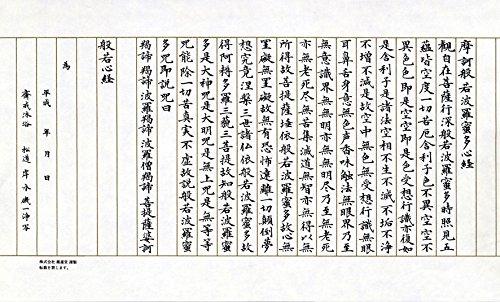 摩訶般若波羅蜜多心経
觀自在菩薩行深般若波羅蜜多時照見五
蘊皆空度一切苦厄舎利子色不異空空不
異色色即是空空即是色受想行識亦復如
是舎利子是諸法空相不生不滅不垢不浄
不増不減是故空中無色無受想行識無眼
耳鼻舌身意無色声香味触法無眼界乃至
無意識界無無明亦無無明尽乃至無老死
亦無老死尽無苦集滅道無智亦無得以無
所得故菩提薩埵依般若波羅蜜多故心無
罣礙無罣礙故無有恐怖遠離一切顛倒夢
想究竟涅槃三世諸仏依般若波羅蜜多故
得阿耨多羅三藐三菩提故知般若波羅蜜
多是大神呪是大明呪是無上呪是無等等
呪能除一切苦真実不虚故説般若波羅蜜
多呪即説呪曰
羯諦羯諦波羅羯諦波羅僧羯諦菩提薩婆訶
般若心経
為
平成 年 月 日
斎戒沐浴 岸本磯一浄写
株式会社 謹製
転載を禁じます。